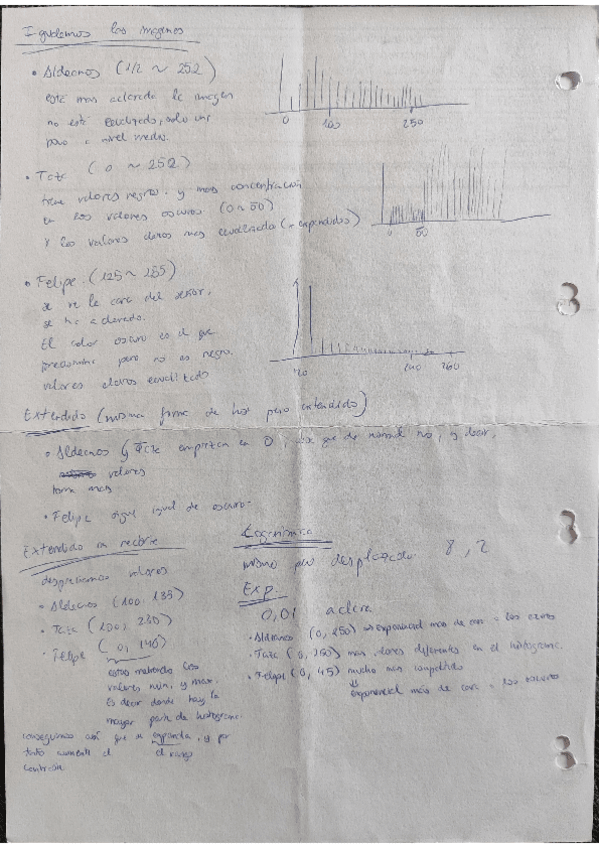 Igualemos las imágenes
• Aldeanos (112 ~ 252)
está mas aclarada la imagen
no está ecualizado, solo un
poco a nivel medio.
0 100 250
• Taza (0 ~ 252)
tiene valores negros. y mas concentración
en los valores oscuros (0 ~ 50)
y los valores claros mas ecualizado (+ expandidos)
0 50
• Felipe. (125 ~ 255)
se ve la cara del señor.
se ha aclarado.
El color oscuro es el que
predomina pero no es negro.
valores claros
140 260
Extendido (misma forma de hist pero extendido)
• Aldeanos y Taza empiezan en 0, que de normal no, es decir,
valores
toma mas
• Felipe sigue igual de oscuro.
Extendido con recorte
despreciamos valores
• Aldeanos (100, 135)
• Taza (100, 230)
• Felipe (0, 140)
estos metiendo los
valores min, y max.
Es decir donde hay la
mayor parte de histograma.
conseguimos así que se expanda, y por
tanto aumente el el rango
Logarítmica
mismo pero desplazado 8, 2
Exp.
0,01 aclara
• Aldeanos (0, 250) exponencial más de cerca a los
• Taza (0, 250) mas valores diferentes en el histograma.
• Felipe (0, 45) mucho mas
exponencial más de cerca a los